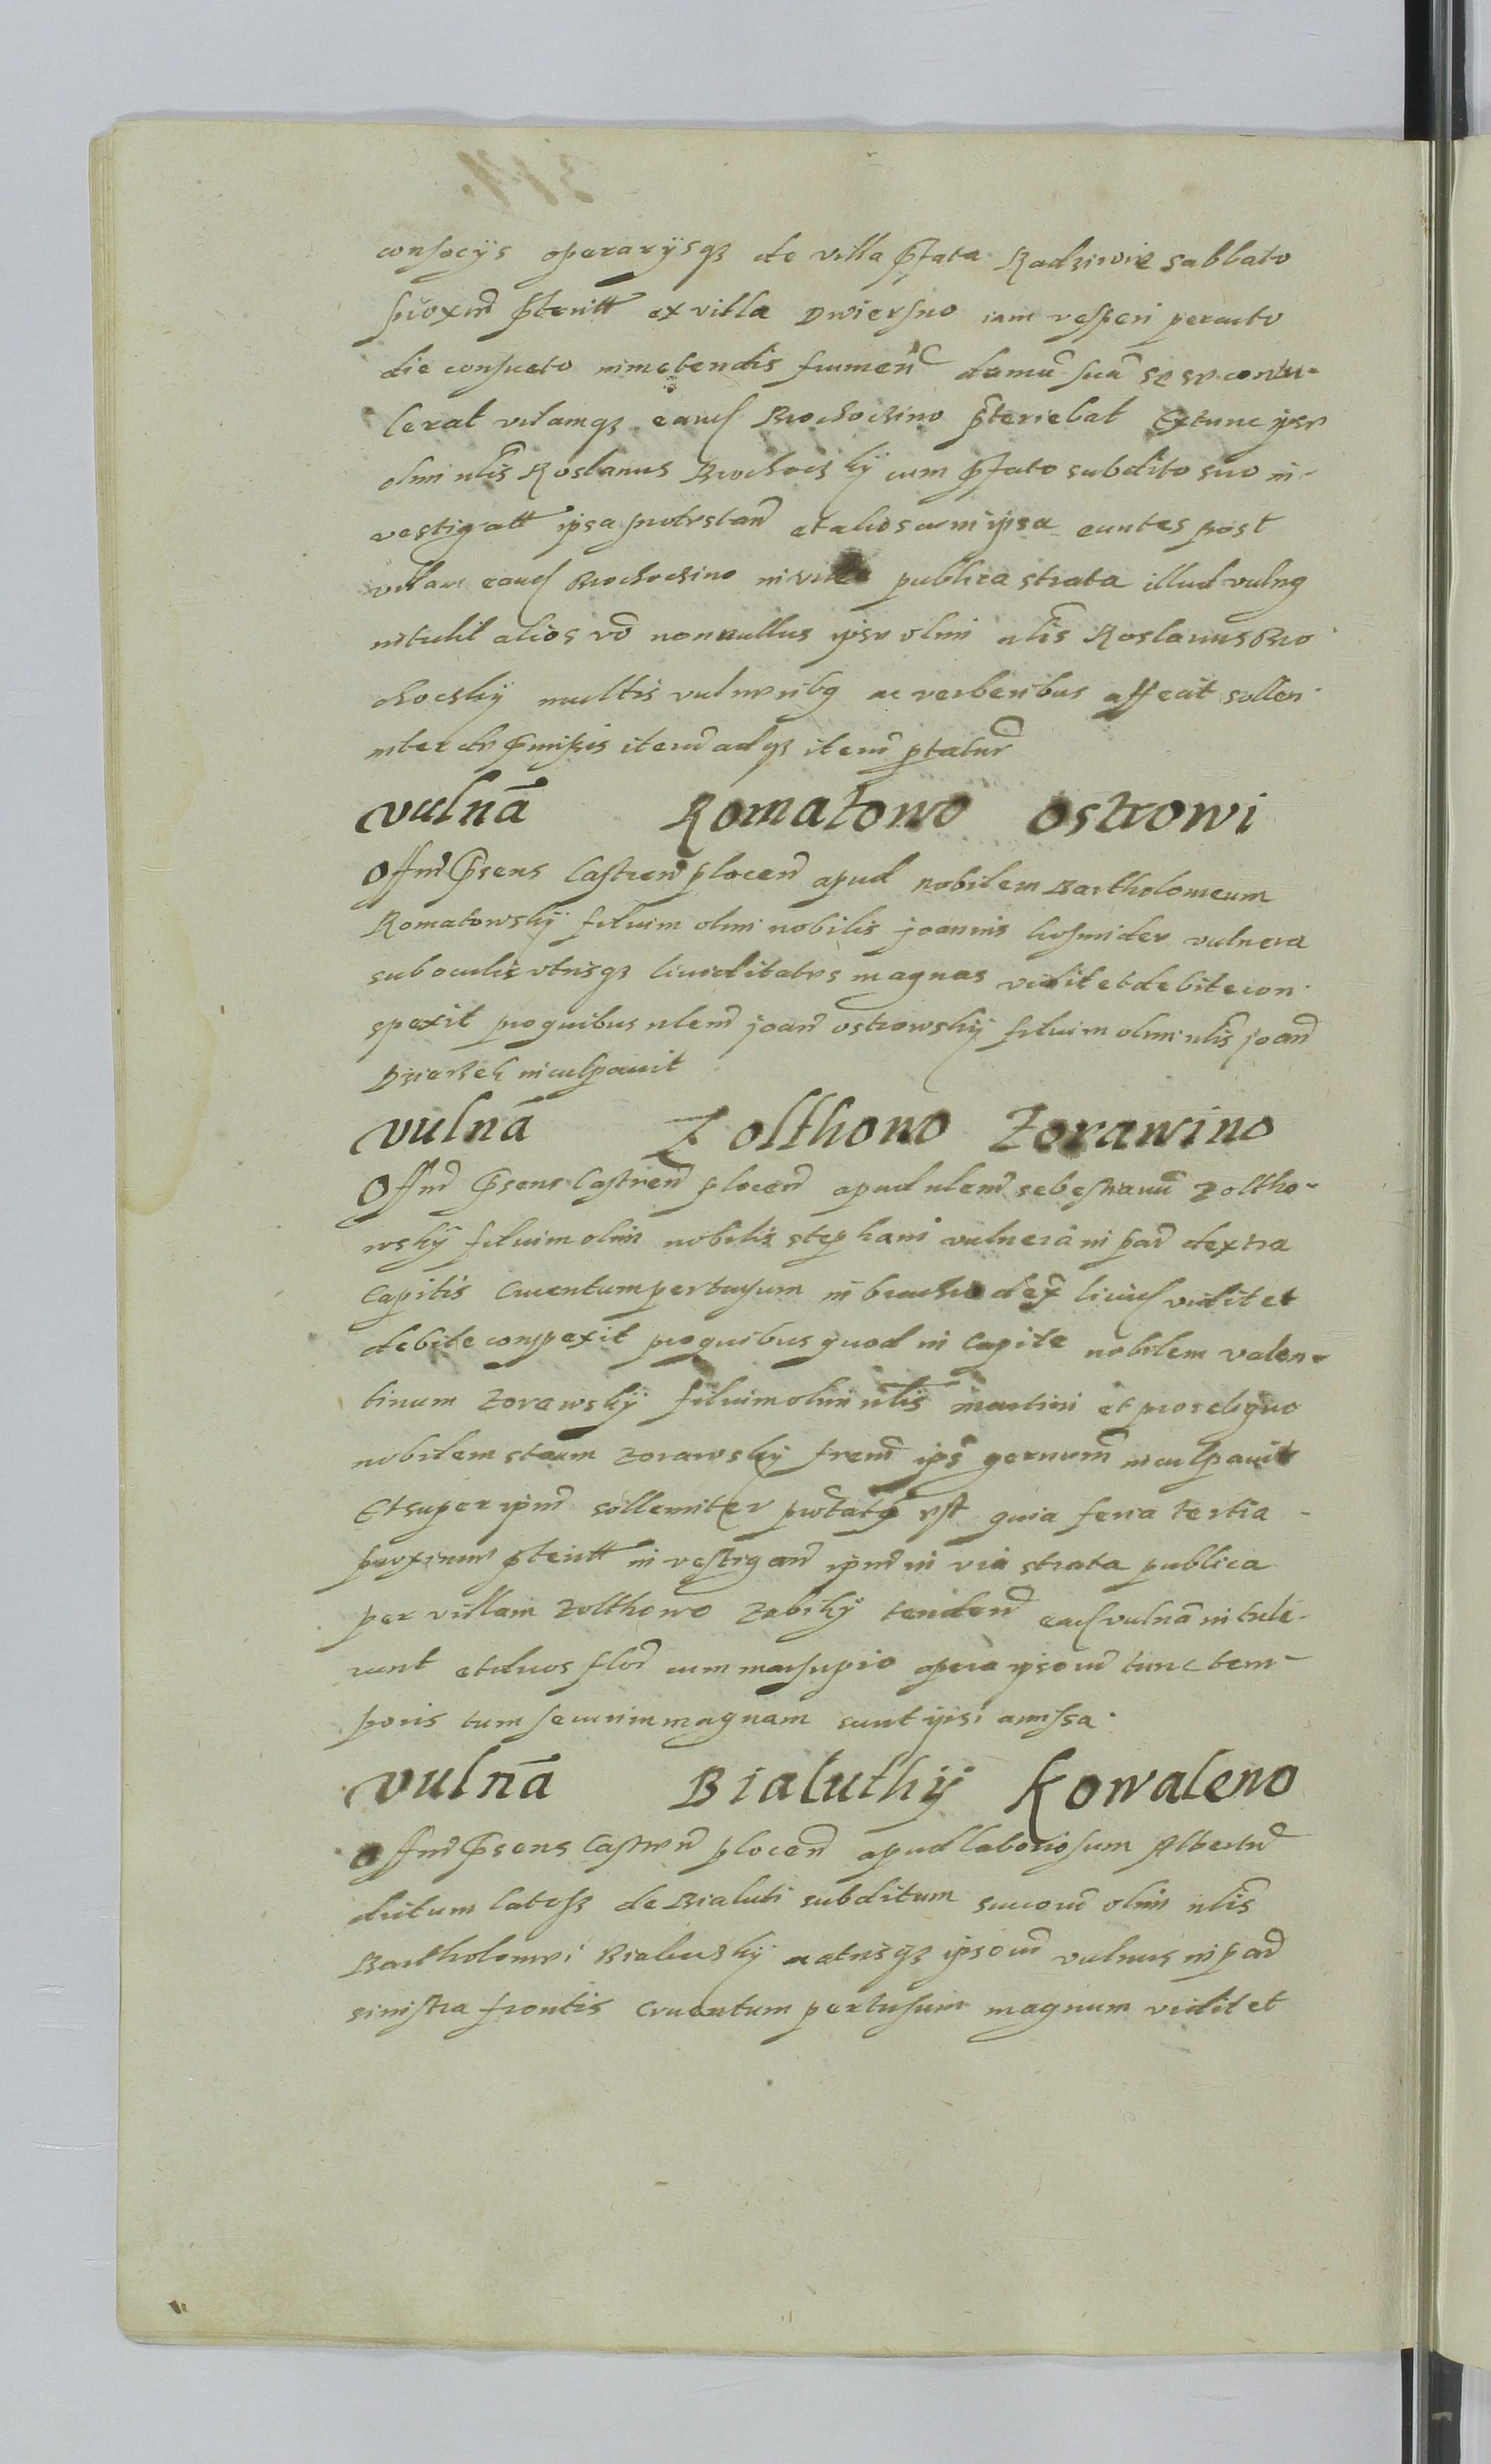 consocijs operarijsqz de villa pfata Radziwie sabbato
proxim pteritt ex villa Dwiersno iam vesperi peracto
die consueto in metendis frumen domu sua sese contu-
lerat villamqz eand Brochoczino preteriebat Extunc ipse
olim nlis Roslanus Brochoczky cum pfato subdito suo in-
vestigatt ipsa protestan et alios cum ipsa euntes post
villam eand Brochoczino in via publica strata illud vulnq
intulit alios vo nonnullus ipse olim nlis Roslanus Bro
choczky multis vulneribq ac verberibus affecit sollen
niter de pmissis iteru adqz iteru ptatur
vulna Romatowo Ostrowi
Offm Psens Castren plocen apud nobilem Bartholomeum
Romatowsky filium olim nobilis joannis vulnera
sub oculis vtrisqz liuiditates magnas vidit et debite con
spexit pro quibus nlem joan ostrowskij filium olim nlis joan
inculpauit
vulna Zolthowo Zorawino
Offm Psens Castren plocen apud nlem sebestianu Zoltho-
wskij filium olim nobilis stephani vulnera in par dextra
Capitis Cruentum pertusum in brachio dex liuid vidit et
debite conspexit pro quibus quod in capite nobilem valen-
tinum Zorawskij filium olim nlis martini et pro reliquo
nobilem stanm Zorawskij frem ips germum inculpauit
Et super ipm sollenniter protatq est quia feria tertia
proxime pteritt investigan ipm in via strata publica
per villam Zolthowo Zabikij tenden ead vulna intule-
runt et duos flor cum marsupio opera ipsorum tunc tem-
poris tum securim magnam sunt ipsi amissa
vulna Bialuthij Kowalewo
Offm Psens Castren plocen apud laboriosum Albertu
dictum de Bialuti subditum sucorum olim nlis
Bartholomei Bialuczkij matrisqz ipsorum vulnus in par
sinistra frontis Cruentum pertusum magnum vidit et